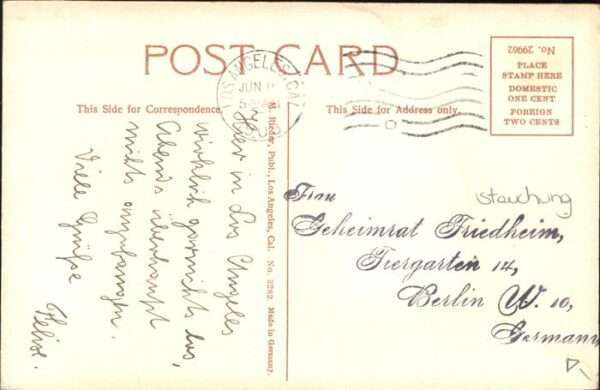 POST CARD
No. 29962
PLACE
STAMP HERE
DOMESTIC
ONE CENT
FOREIGN
TWO CENTS
LOS ANGELES, CAL
JUN
This Side for Correspondence.
This Side for Address only.
M. Rieder, Publ., Los Angeles, Cal. No. 3282. Made in Germany.
Hier in Los Angeles
wirklich garnichts los,
Abends überhaupt
nichts anzufangen.
Viele Grüße
Stauchung
Frau
Geheimrat Friedheim,
Tiergarten 14,
Berlin W. 10,
Germany